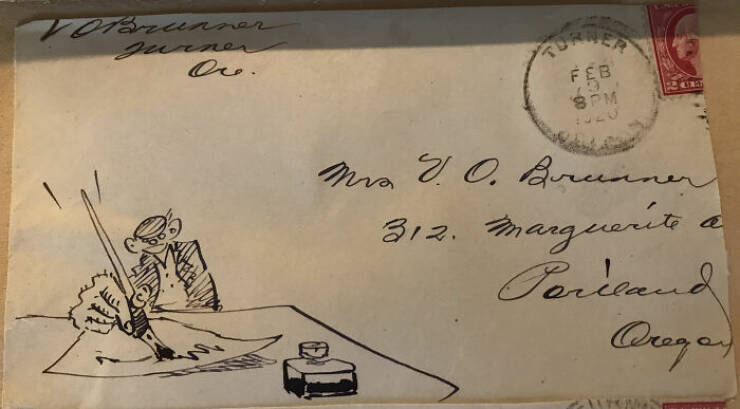 V O Brunner
Turner
Ore.
TURNER
FEB
8 PM
1920
Mrs V. O. Brunner
312. Marguerite a
Portland
Oregon